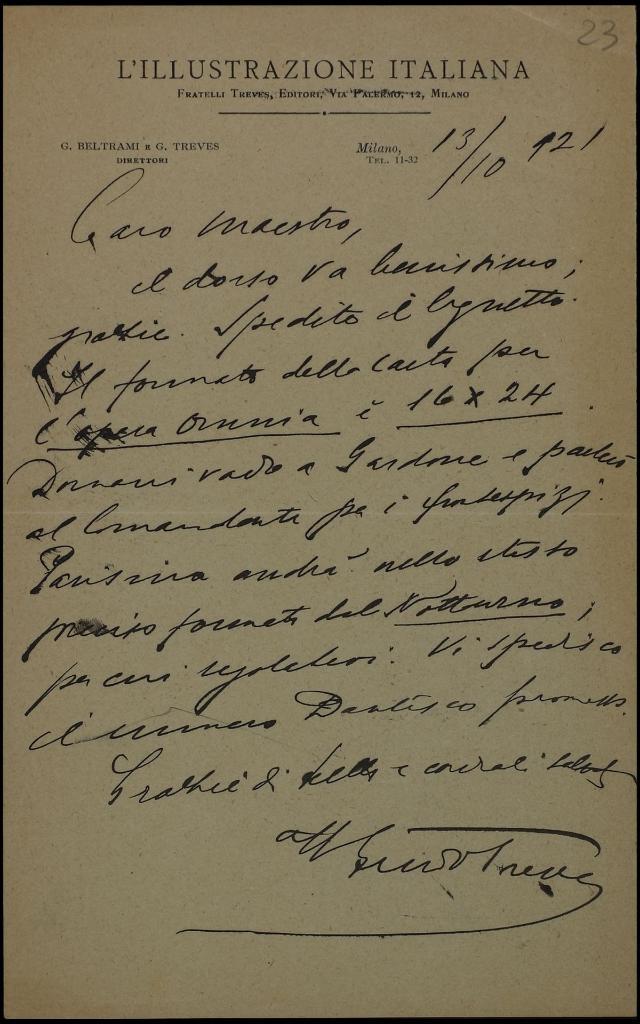 23
L'ILLUSTRAZIONE ITALIANA
FRATELLI TREVES, EDITORI, VIA PALERMO, 12, MILANO
G. BELTRAMI E G. TREVES
DIRETTORI
Milano, 13/10 921
TEL. 11-32
Caro Maestro,
il dorso va benissimo;
grazie. Spedito il legnetto.
Il formato della carta per
l'opera omnia è 16 x 24.
Domani vado a Gardone e parlerò
al Comandante per i frontespizi.
Parisina andrà nello stesso
preciso formato del Notturno;
per cui regolatevi. Vi spedisco
il numero Dantesco promesso.
Grazie di tutto e cordiali saluti
aff Guido Treves